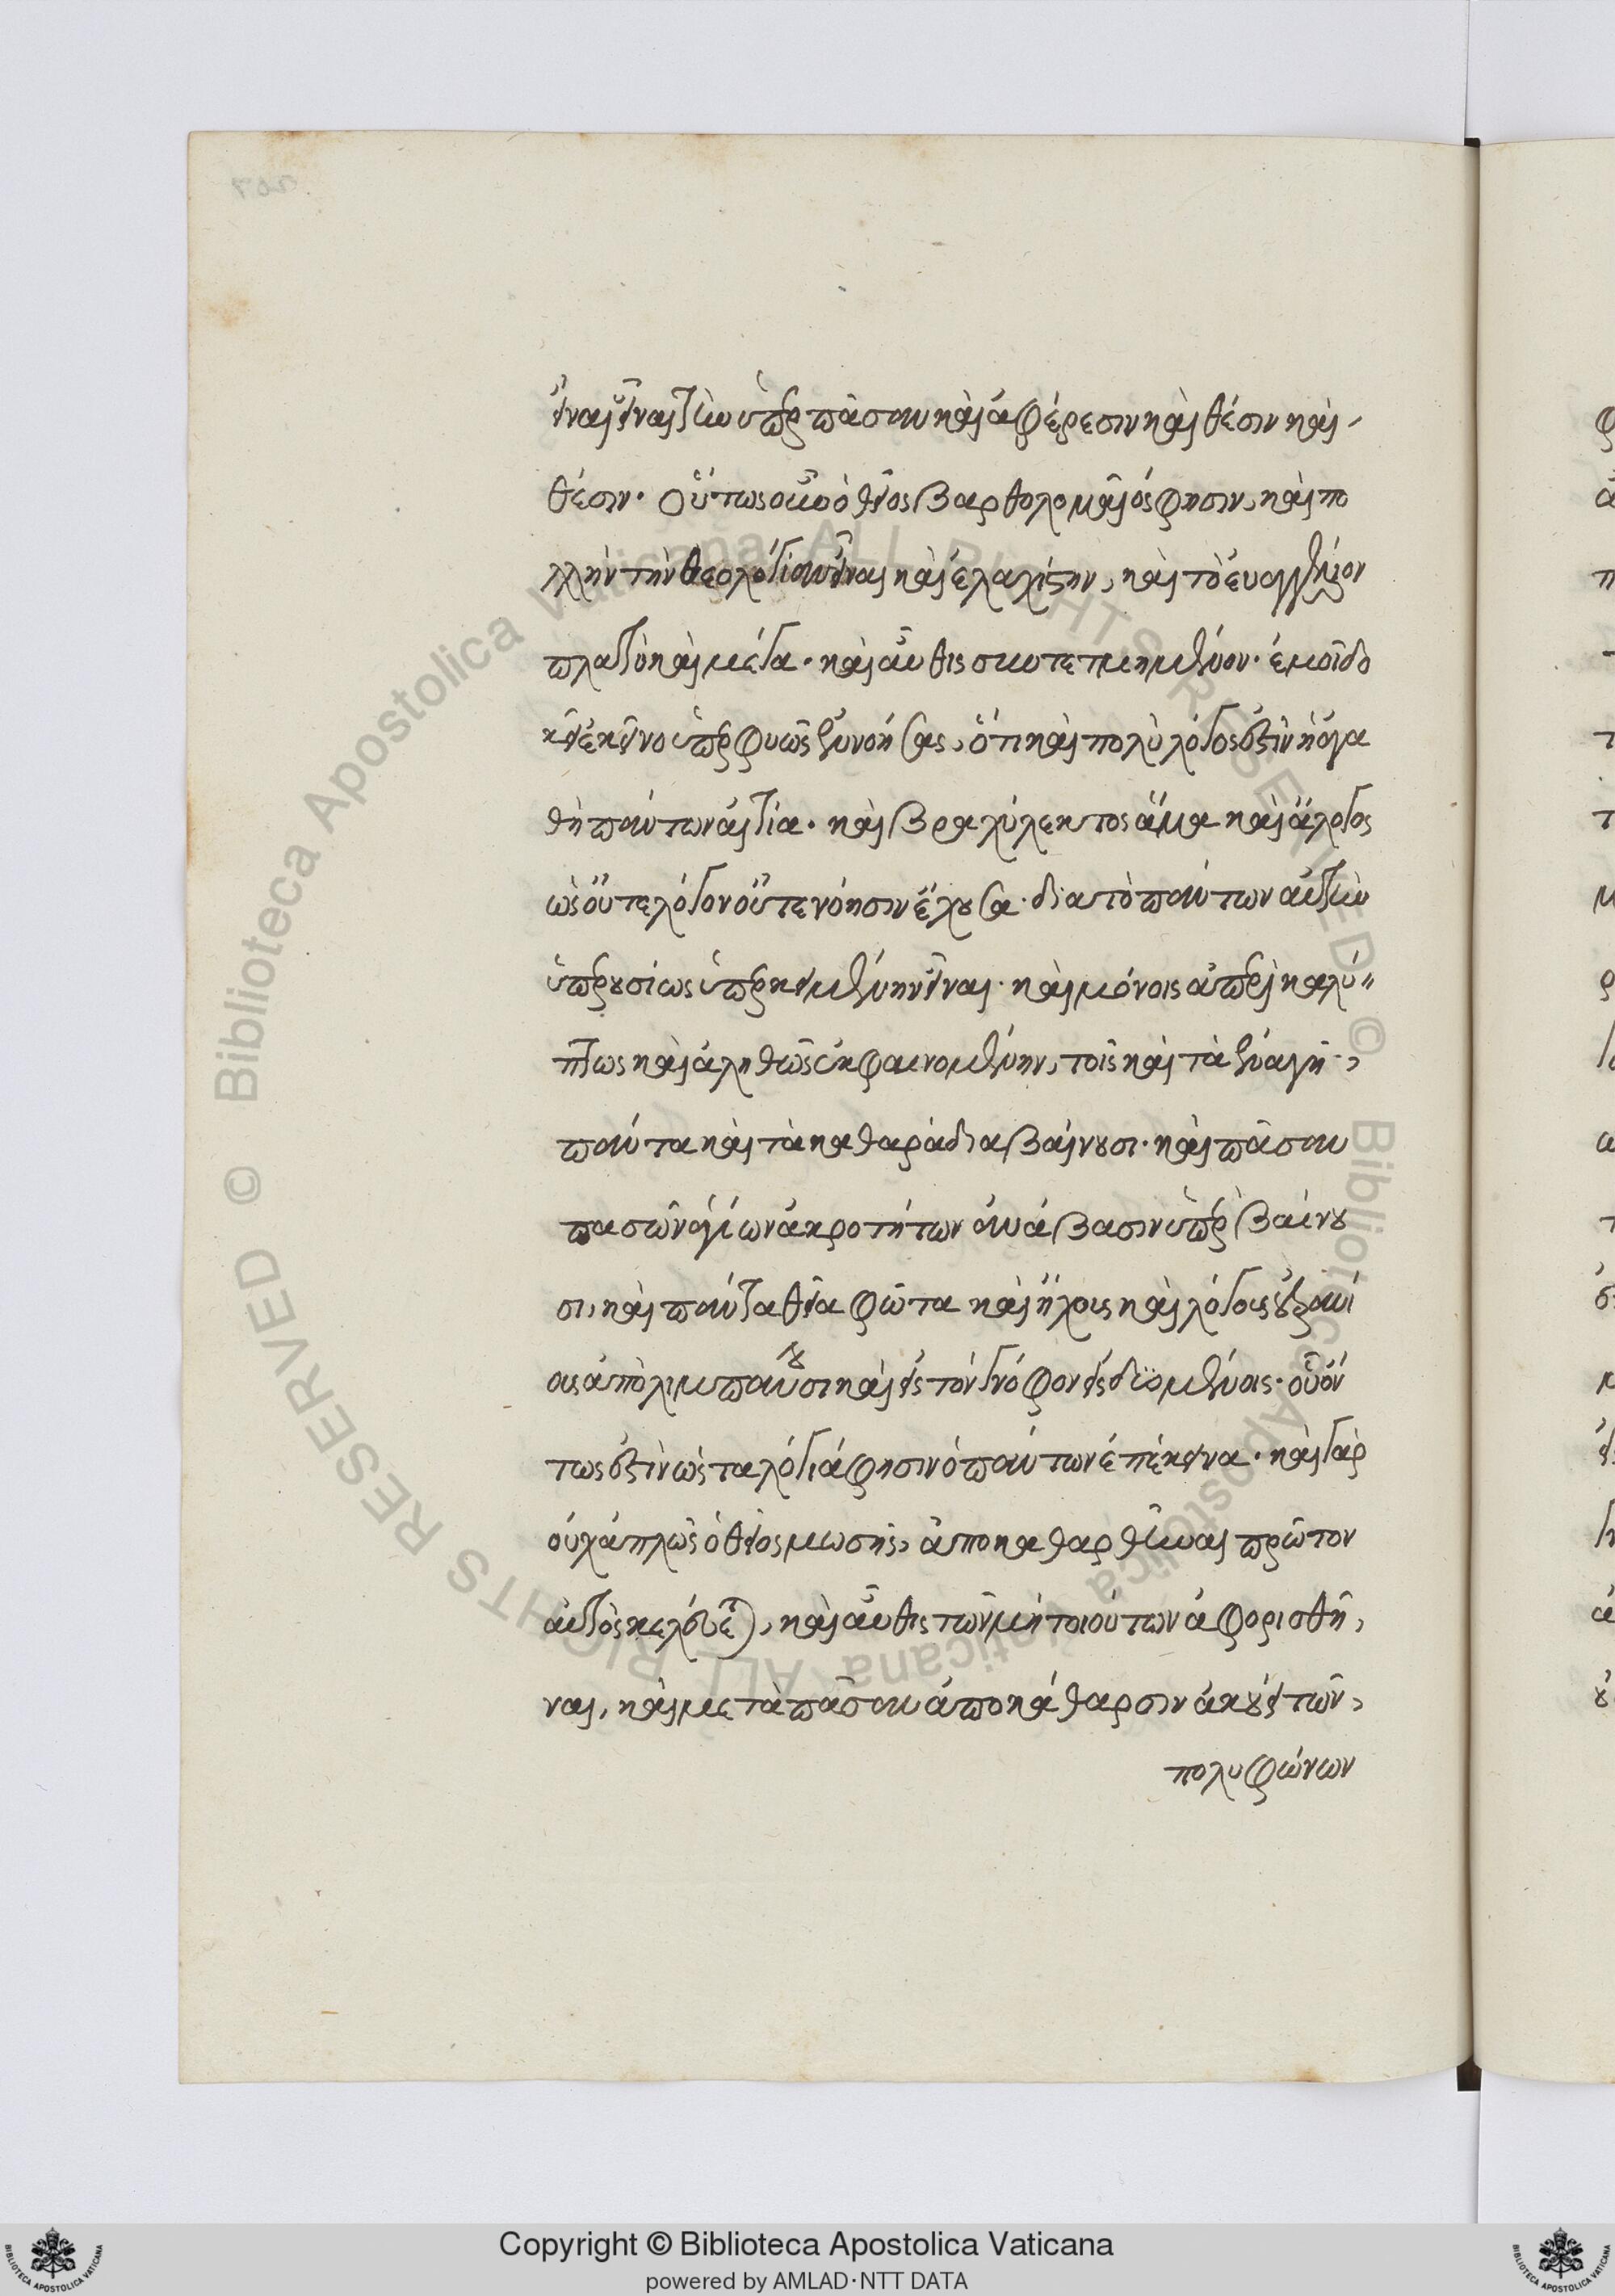 εἶναι εἶναι τὴν ὑπὲρ πᾶσαν καὶ ἀφέρεσιν καὶ θέσιν καὶ
θέσιν· Οὕτως οὖν ὁ θεῖος βαρθολομαῖός φησιν, καὶ πο
λλὴν τὴν θεολογίαν εἶναι καὶ ἐλαχίστην, καὶ τὸ ἐυαγγέλιον
πλατὺ καὶ μέγα· καὶ αὖθις συντετμημένον· ἐμοὶ δο
κεῖ ἐκεῖνο ὑπερφυῶς ἐννοήσας, ὅτι καὶ πολὺλόγος ἐστὶν ἡ ἀγα
θὴ πάντων αἰτία· καὶ βραχύλεκτος ἅμα καὶ ἄλογος
ὡς οὔτε λόγον οὔτε νόησιν ἔχουσα· διὰ τὸ πάντων αὐτὴν
ὑπερουσίως ὑπερκειμένην εἶναι· καὶ μόνοις ἀπερικαλύ
πτως καὶ ἀληθῶς ἐκφαινομένην, τοῖς καὶ τὰ ἐναγῆ,
πάντα καὶ τὰ καθαρὰ διαβαίνουσι· καὶ πᾶσαν
πασῶν ἁγίων ἀκροτήτων ἀνάβασιν ὑπερβαίνου
σι, καὶ πάντα θεῖα φῶτα καὶ ἤχοις καὶ λόγοις οὐρανί
οις ἀπολιμπάνουσι καὶ εἰς τὸν γνόφον εἰσδυομένοις· οὗ ὄν
τως ἐστὶν ὡς τα λόγιά φησιν ὁ πάντων ἐπέκεινα· καὶ γὰρ
οὐχ ἁπλῶς ὁ θεῖος μωσῆς, ἀποκαθαρθῆναι πρῶτον
αὐτὸς κελέυεται, καὶ αὖθις τῶν μὴ τοιούτων ἀφορισθῆ
ναι, καὶ μετὰ πᾶσαν ἀποκάθαρσιν ἀκούει τῶν,
πολυφώνων
Copyright © Biblioteca Apostolica Vaticana
powered by AMLAD·NTT DATA